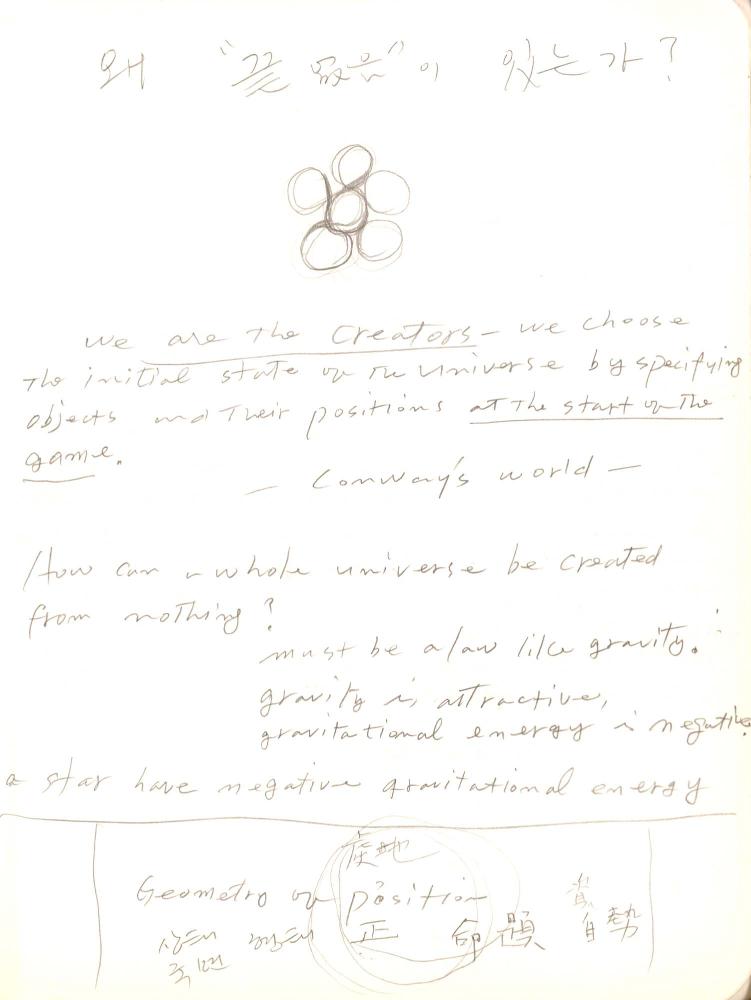 왜 "끝 없음"이 있는가?
we are the Creators – we choose
the initial state of the universe by specifying
objects and their positions at the start of the
game.
– Conway's world –
How can a whole universe be created
from nothing?
must be a law like gravity.
gravity is attractive,
gravitational energy is negative.
a star have negative gravitational energy
Geometry of position
상태 형태 正 命題 自勢
측면